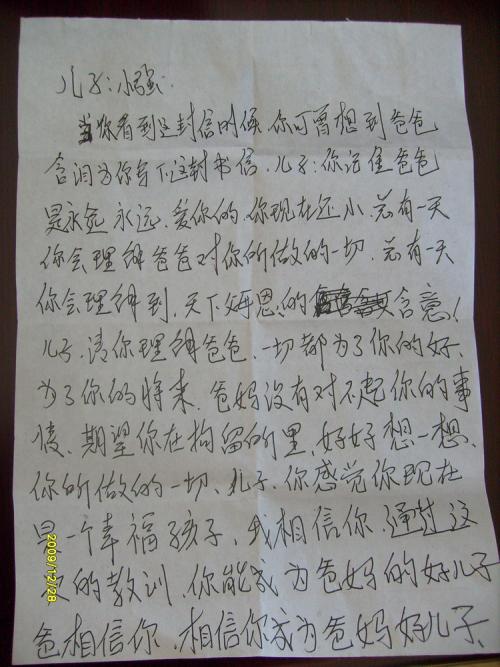 儿子:小强:
当你看到这封信的时候,你可曾想到爸爸
含泪为你写下这封书信,儿子:你记住爸爸
是永远永远,爱你的,你现在还小,总有一天
你会理解爸爸对你所做的一切,总有一天
你会理解到,天下父母恩的含意!
儿子,请你理解爸爸,一切都为了你的好、
为了你的将来,爸妈没有对不起你的事
情、期望你在拘留所里,好好想一想、
你所做的一切、儿子,你感觉你现在
是一个幸福孩子,我相信你,通过这
次的教训,你能成为爸妈的好儿子
爸相信你,相信你成为爸妈好儿子、
2009/12/28